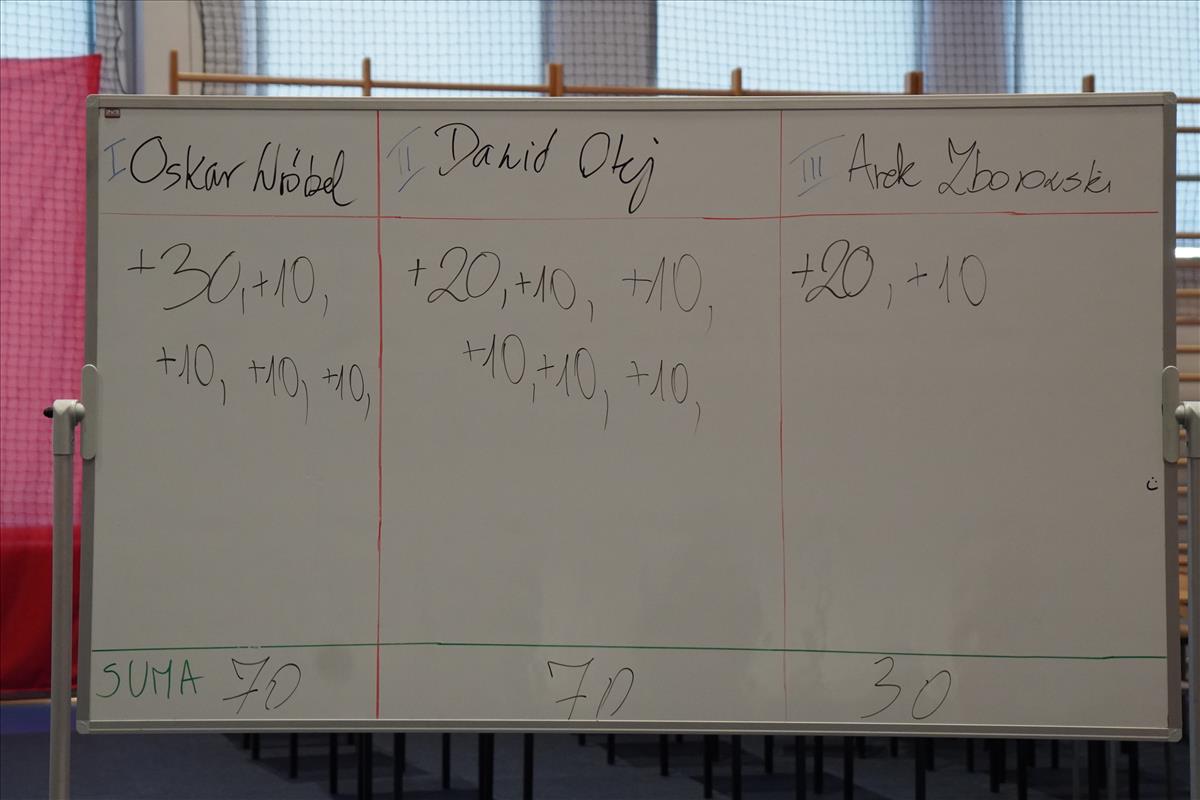 I Oskar Wróbel
II Dawid Otej
III Arek Zborowski
+30, +10,
+10, +10, +10,
+20, +10, +10,
+10, +10, +10,
+20, +10
SUMA 70
70
30